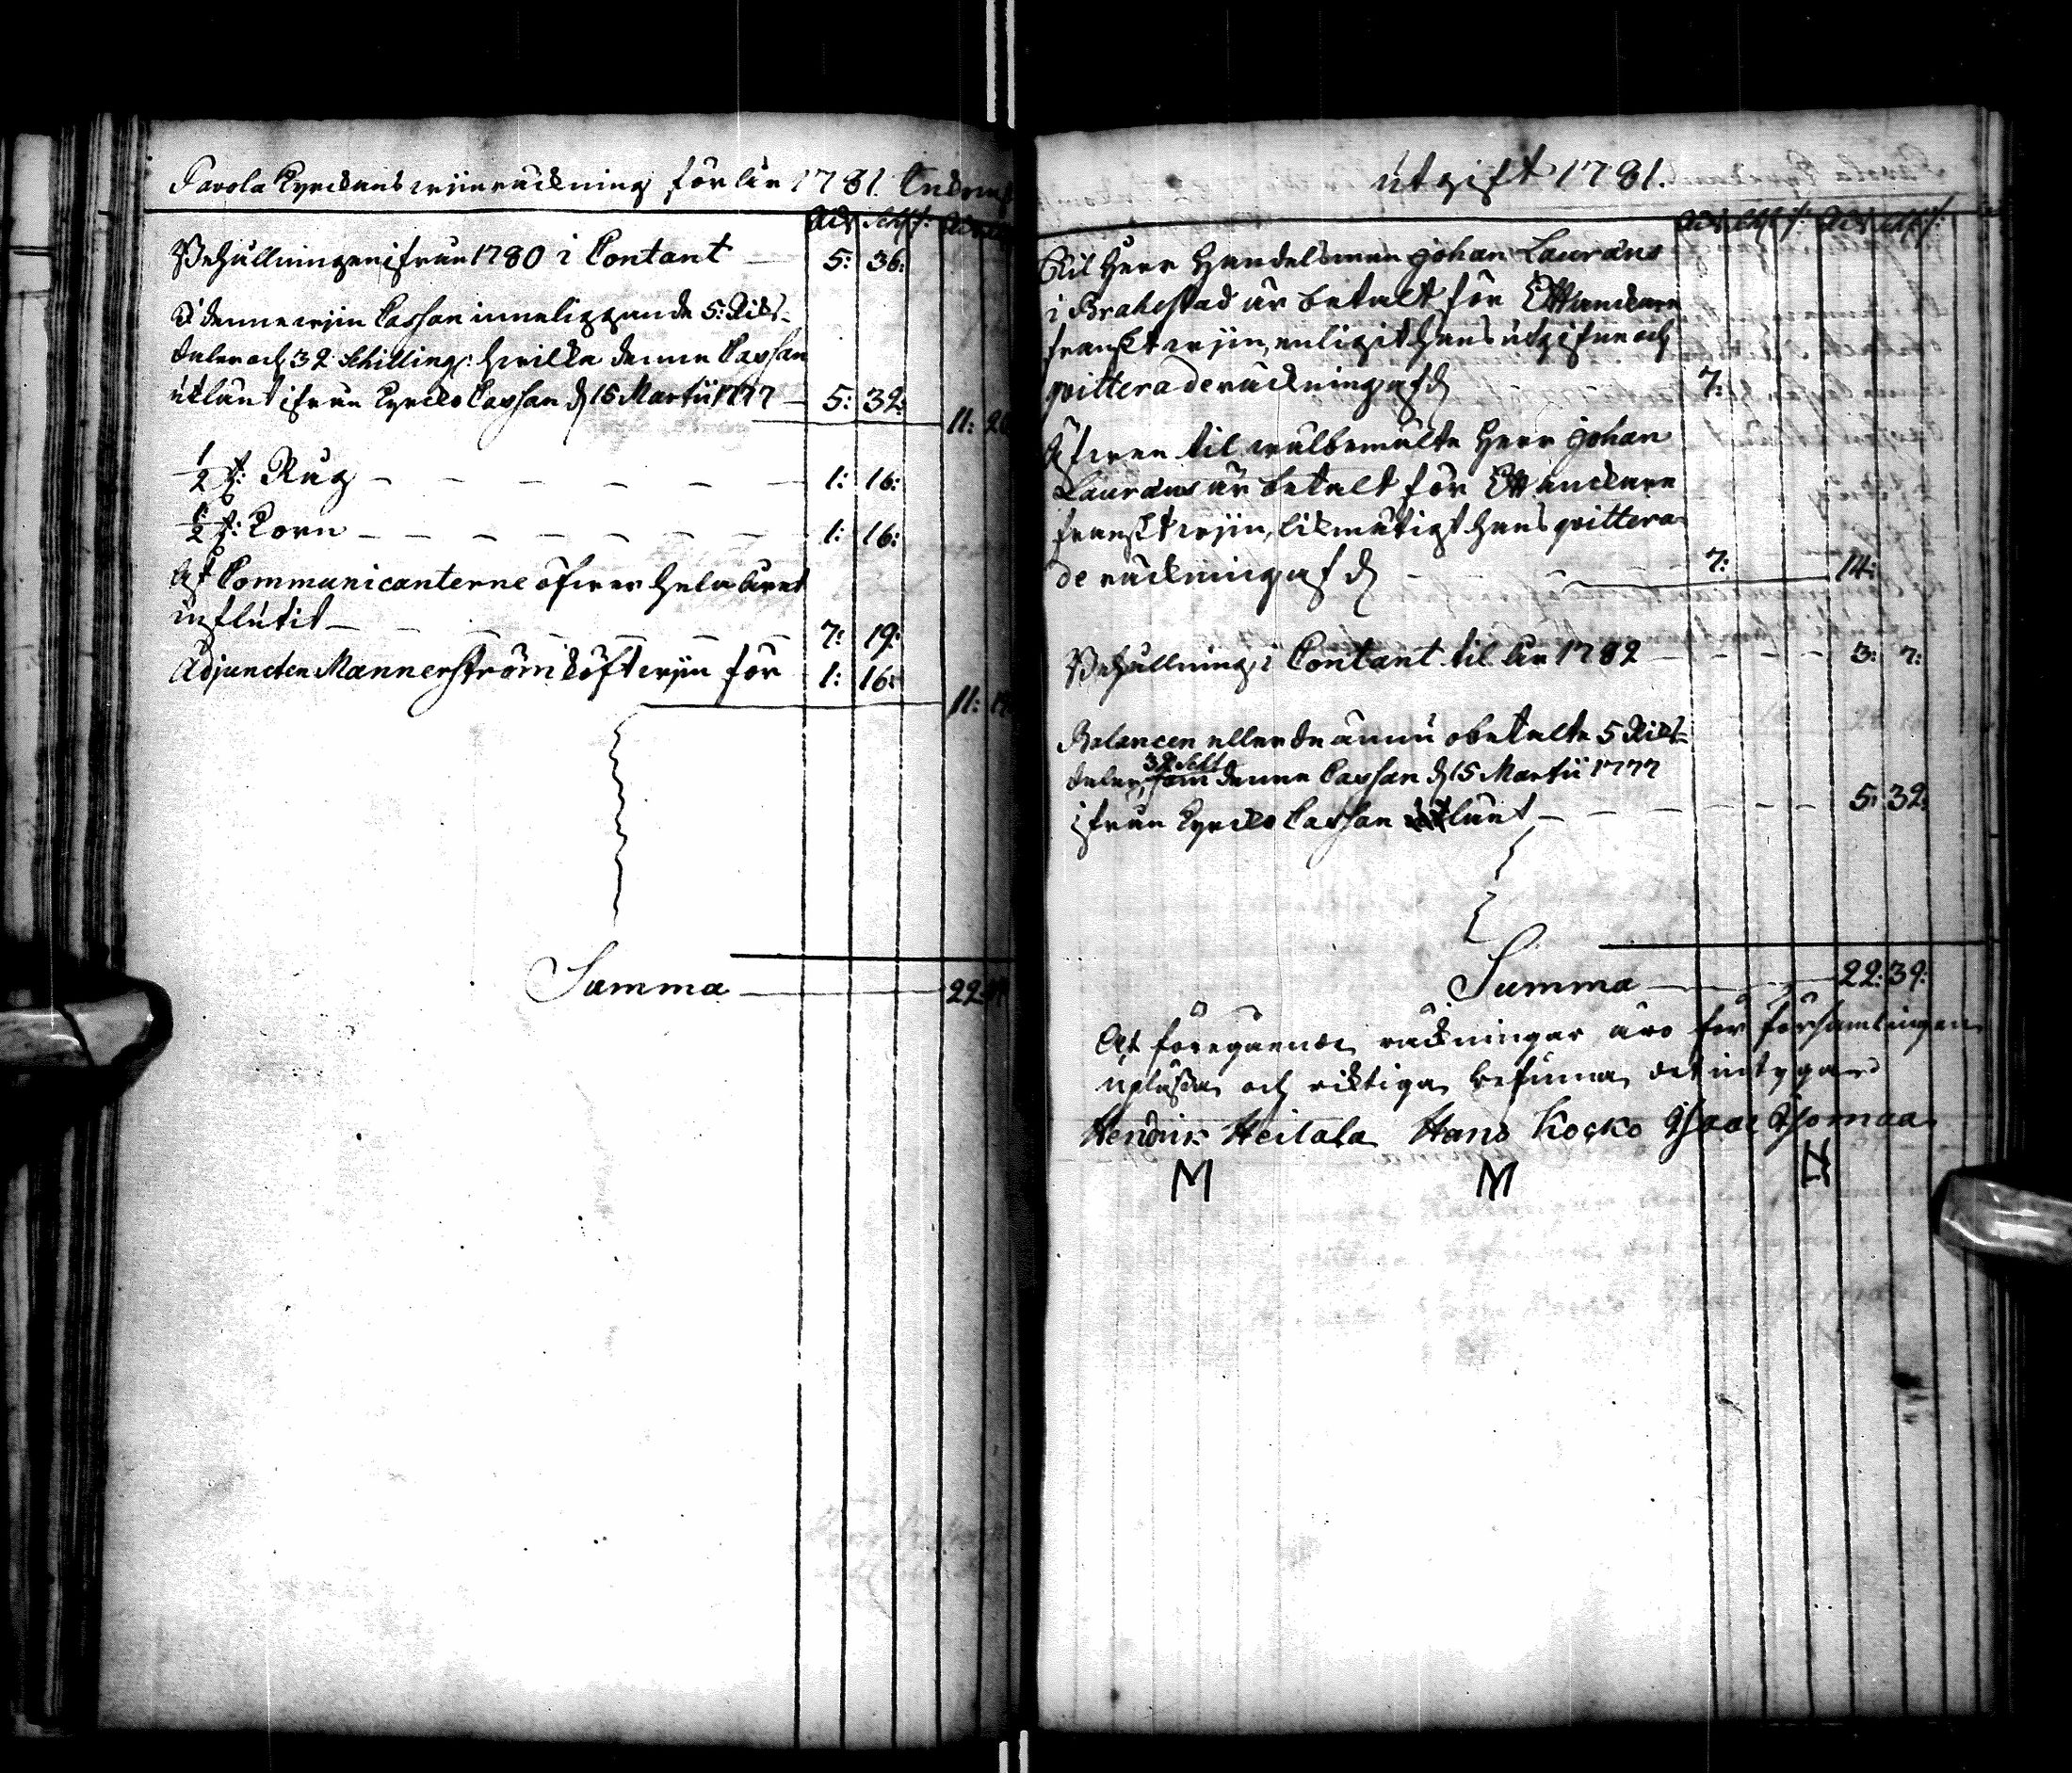 Pavola Kyrckans wijnräckning för år 1781. Inkomst
Rdr Schl: /: Rdr
Behållningen ifrån 1780 i Contant — 5: 36:
I denne wijn Cassan inneliggande 5: Riks-
daler och 32 Schilling: hwilka denne Cassan
utlånt ifrån Kyrcko Cassan d 15 Martii 1777 — 5: 32:
11: 20
1/2 t: Råg — 1: 16:
1/2 t: Korn — 1: 16:
Af Communicanterne öfwer hela året
influtit — 7: 19:
Adjuncten Mannerström köft wijn för 1: 16:
11: 19
Summa — 22: 39
Utgift 1781.
Rdr Schl /: Rdr Schl /:
Til Herr Handelsman Johan Lauræus
i Brahestad är betalt för Ett anckare
franskt wijn, enligit hans utgifne och
qvitterade räckning af d 7:
Äfwen til wälbemälte Herr Johan
Lauræus är betalt för Ett anckare
franskt wijn, likmätigt hans qvittera-
de räckning af d — 7: 14:
Behållning i Contant til år 1782 — 3: 7:
Balancen eller de ännu obetalte 5 Riks-
daler, 32 Schl som denne Cassan d 15 Martii 1777
ifrån Kyrcko Cassan lånt — 5: 32:
Summa — 22: 39:
At föregående räckningar äro för församlingen
upläsna och riktiga befunna, det intygar
Hendrik Heilala Hans Kocko Isaac Thomaa
M M